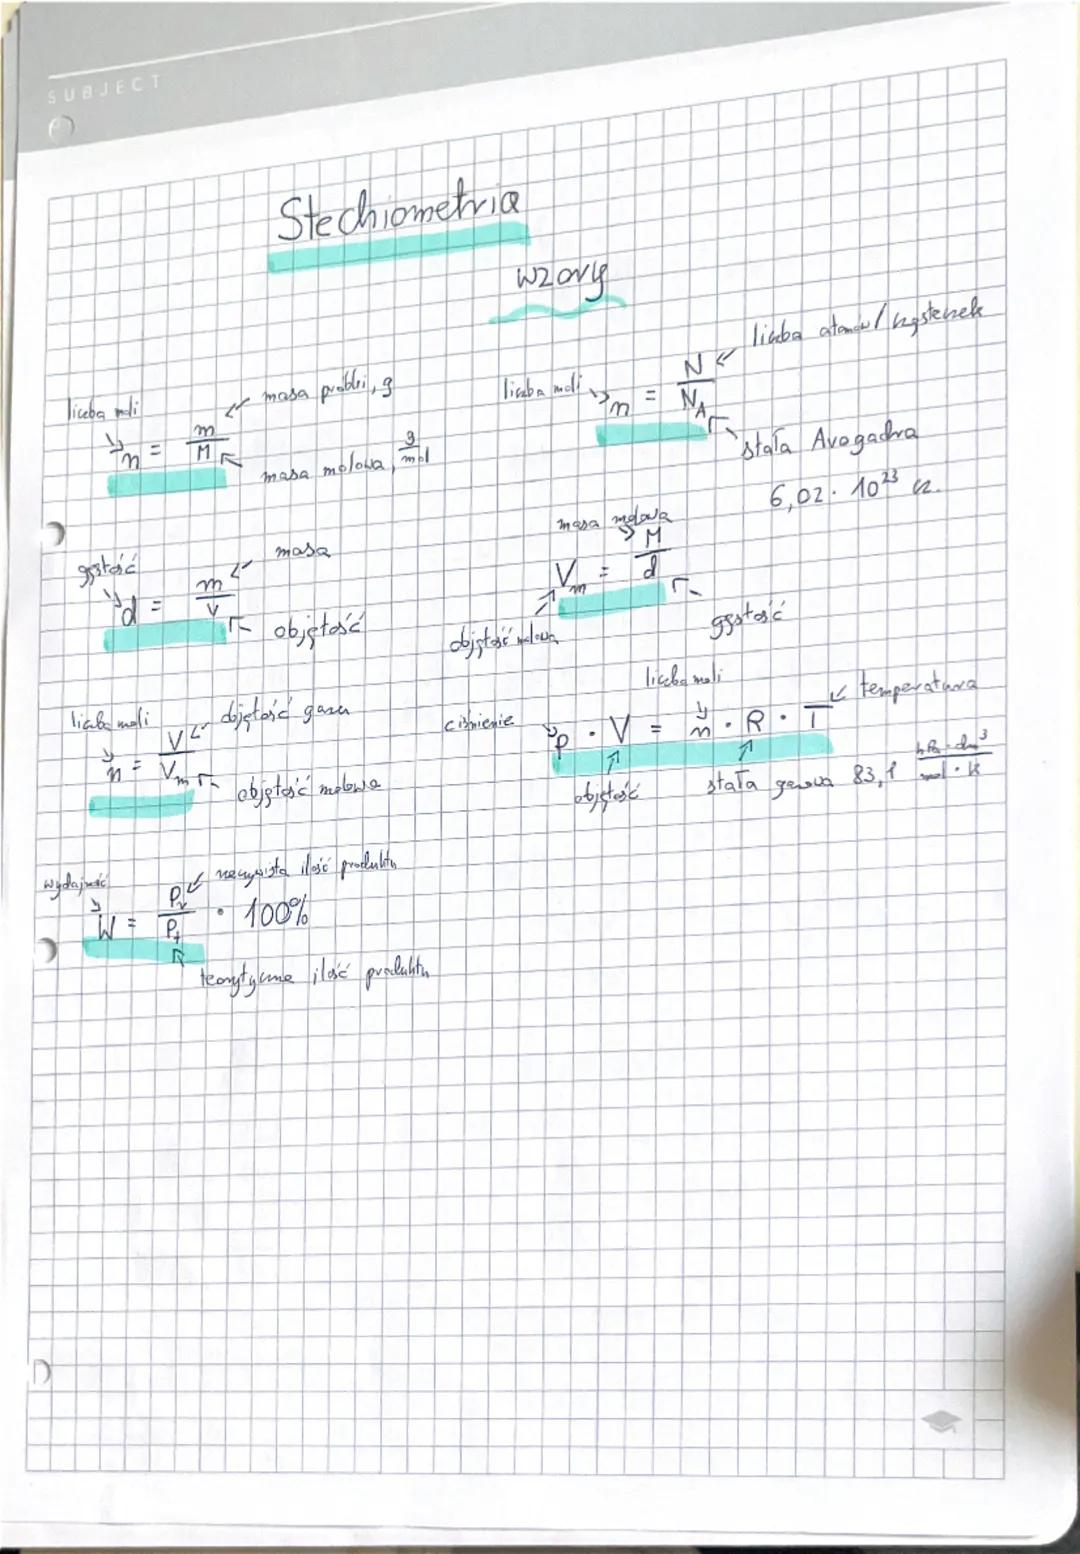 SUBJECT
Stechiometria
wzory
liczba moli
n = m/M
masa próbki, g
masa molowa, g/mol
liczba moli
n = N/N_A
liczba atomów/cząsteczek
stała Avogadra
6,02 · 10²³ cz.
gęstość
d = m/V
masa
objętość
masa molowa
V_m = M/d
objętość molowa
gęstość
liczba moli
n = V/V_m
objętość gazu
objętość molowa
ciśnienie
liczba moli
temperatura
p · V = n · R · T
objętość
stała gazowa 83,1 hPa · dm³/mol · K
wydajność
W = P_r/P_t · 100%
rzeczywista ilość produktu
teorytyczna ilość produktu